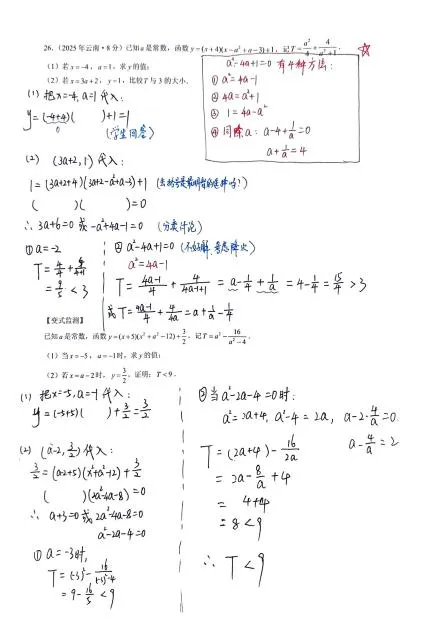 26.（2025年云南·8分）已知a是常数，函数y=(x+4)(x-a²+a-3)+1，记T=a²/4+4/(a²+1).
（1）若x=-4，a=1，求y的值；
（2）若x=3a+2，y=1，比较T与3的大小.
a²-4a+1=0 有4种方法：
① a²=4a-1
② 4a=a²+1
③ 1=4a-a²
④ 同除a: a-4+1/a=0
a+1/a=4
(1) 把x=-4, a=1代入:
y=(-4+4)( )+1=1
0
(学生回答)
(2) (3a+2,1)代入:
1=(3a+2+4)(3a+2-a²+a-3)+1
( )( )=0
∴ 3a+6=0 或 -a²+4a-1=0 (分类讨论)
① a=-2
T=4/4+4/(4+1)
=9/5<3
② a²-4a+1=0
a²=4a-1
T=(4a-1)/4+4/(4a-1+1)=a-1/4+1/a=4-1/4=15/4>3
或T=(4a-1)/4+4/4a=a+1/a-1/4
【变式监测】
已知a是常数，函数y=(x+5)(x²+a²-12)+3/2，记T=a²-16/(a²-4).
（1）当x=-5，a=-1时，求y的值；
（2）若x=a-2时，y=3/2，证明：T<9.
(1) 把x=-5, a=-1代入:
y=(-5+5)( )+3/2=3/2
(2) (a-2, 3/2)代入:
3/2=(a-2+5)(x²+a²-12)+3/2
( )(2a²-4a-8)=0
∴ a+3=0 或 2a²-4a-8=0
a²-2a-4=0
① a=-3时,
T=(-3)²-16/((-3)²-4)
=9-16/5<9
② 当a²-2a-4=0时:
a²=2a+4, a²-4=2a, a-2-4/a=0
a-4/a=2
T=(2a+4)-16/2a
=2a-8/a+4
=4+4
=8<9
∴ T<9